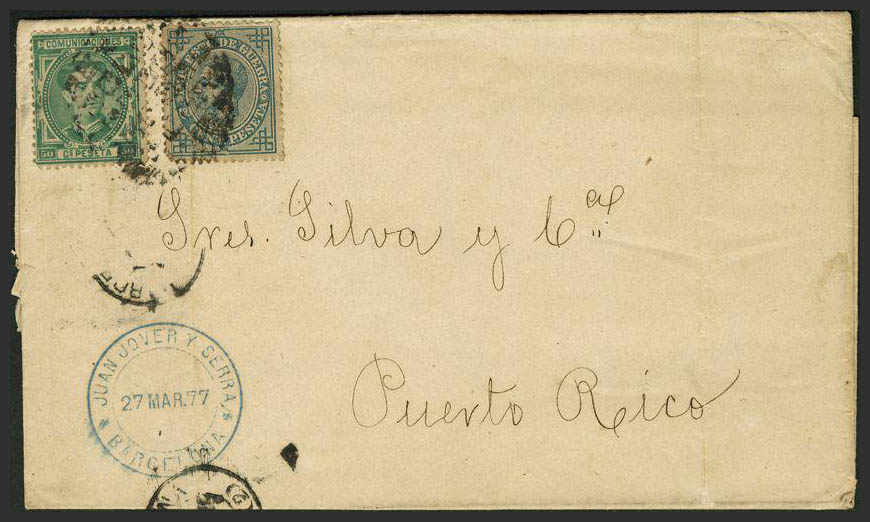 COMUNICACIONES
50 Cs PESETA 50
DE GUERRA
PESETA
Sres. Silva y Cª.
Puerto Rico
JUAN JOVER Y SERRA
27 MAR.77
* BARCELONA *